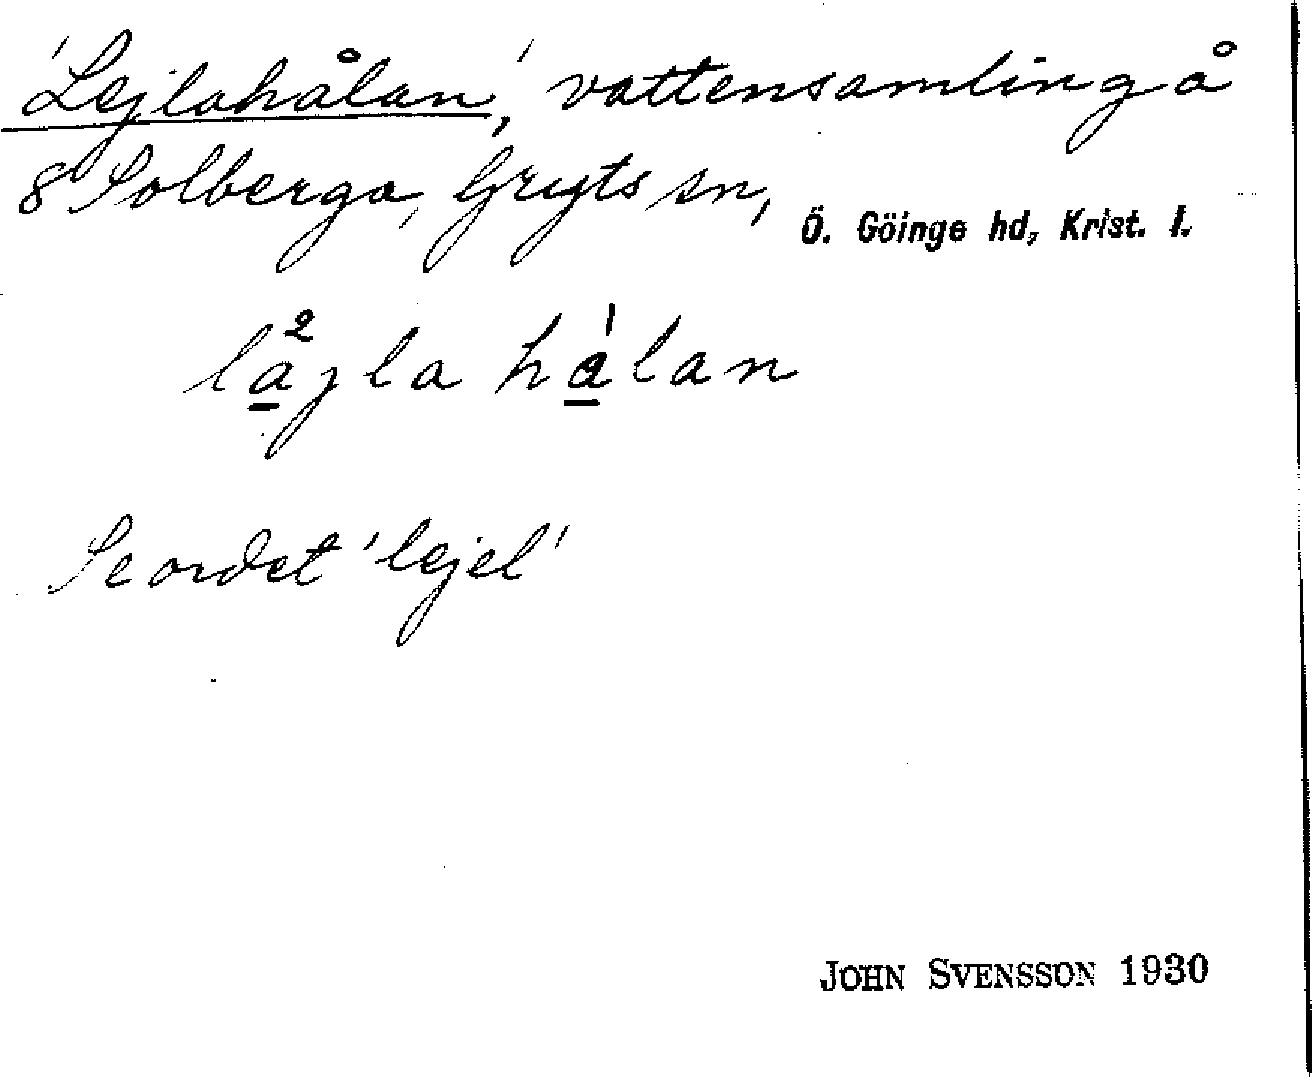 'Lejlahålan', vattensamling å
8 Solberga, Gryts sn, Ö. Göinge hd, Krist. l.
lajla hålan
Se ordet 'lejel'
JOHN SVENSSON 1930